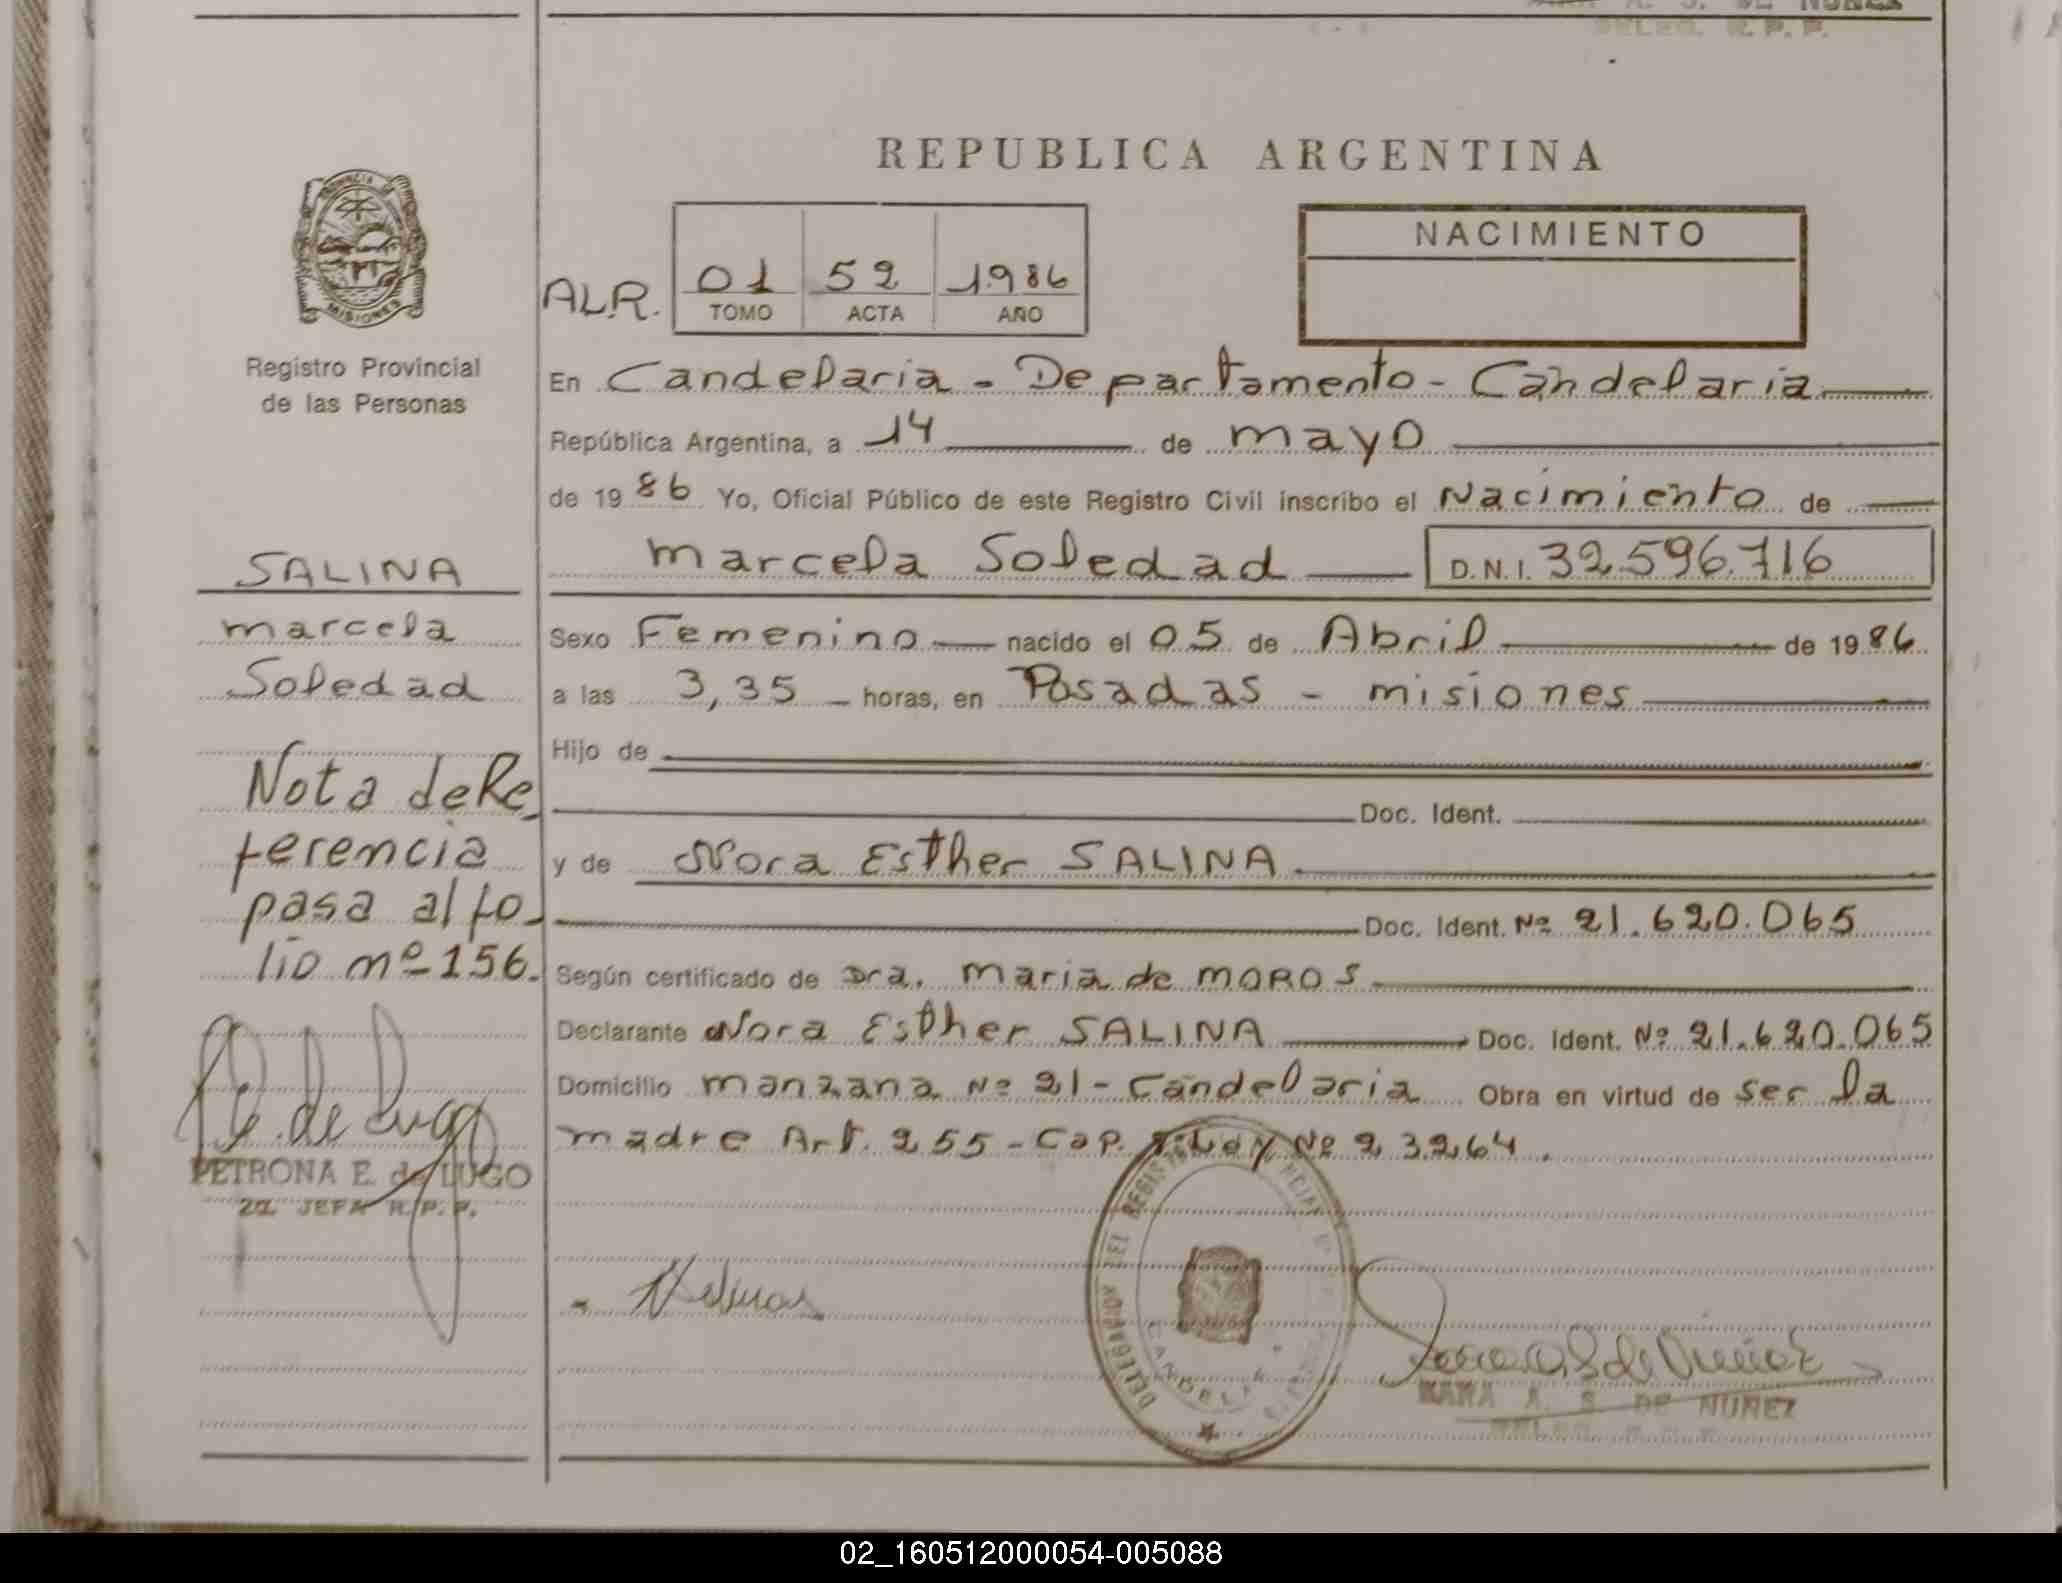 A. S. DE NUÑEZ
DELEG. R. P. P.
REPUBLICA ARGENTINA
PROVINCIA DE
MISIONES
Registro Provincial
de las Personas
ALR.
01 52 1986
TOMO ACTA AÑO
NACIMIENTO
En Candelaria - Departamento - Candelaria
República Argentina, a 14 de mayo
de 1986 Yo, Oficial Público de este Registro Civil inscribo el Nacimiento de
Marcela Soledad D.N.I. 32.596.716
SALINA
marcela
Soledad
Sexo Femenino nacido el 05 de Abril de 1986
a las 3,35 horas, en Posadas - misiones
Hijo de
Doc. Ident.
y de Nora Esther SALINA
Doc. Ident. Nº 21.620.065
Según certificado de Dra. Maria de MOROS
Declarante Nora Esther SALINA Doc. Ident. Nº 21.620.065
Domicilio manzana Nº 21 - Candelaria Obra en virtud de ser la
madre Art. 255 - Cap. Ley Nº 23264.
Nota de Re
ferencia
pasa al fo-
lio nº 156.
P. E. de Lugo
PETRONA E. de LUGO
2a. JEFA R. P. P.
DELEGACION DEL REGISTRO
CANDELARIA
A. S. DE NUÑEZ
02_160512000054-005088